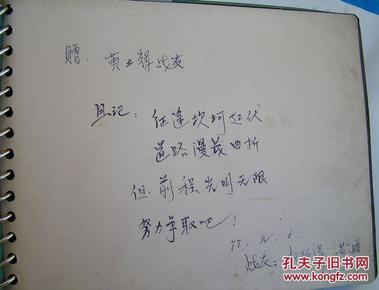 赠：黄土辉战友
且记：征途坎坷起伏
道路漫长曲折
但前程光明无限
努力争取吧！
战友：
孔夫子旧书网